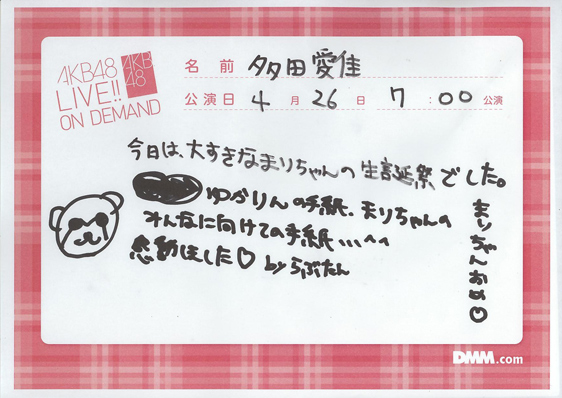 AKB48
LIVE!!
ON DEMAND
AKB
48
名前 多田愛佳
公演日 4月26日 7:00公演
今日は、大すきなまりちゃんの生誕祭でした。
ゆかりんの手紙、まりちゃんの
みんなに向けての手紙...^^
感動しました♡ by らぶたん
まりちゃんおめ♡
DMM.com